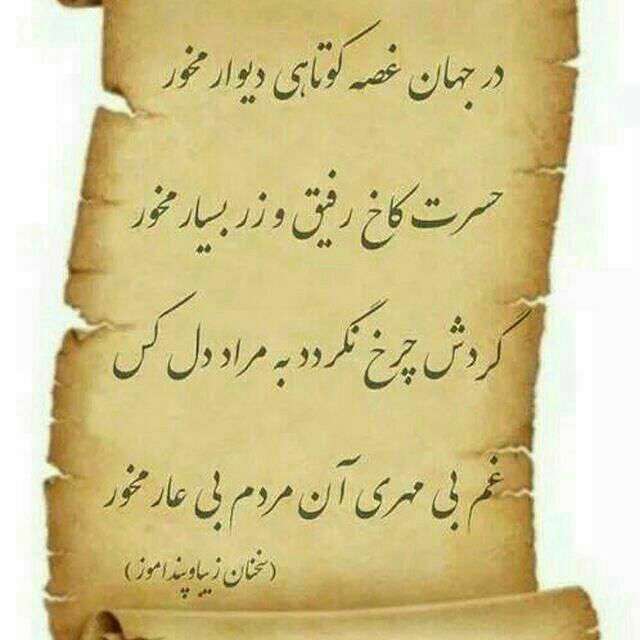 در جهان غصه کوتاهی دیوار مخور
حسرت کاخ رفیق و زر بسیار مخور
گردش چرخ نگردد به مراد دل کس
غم بی مهری آن مردم بی عار مخور
(سخنان زیبا و پند اموز)